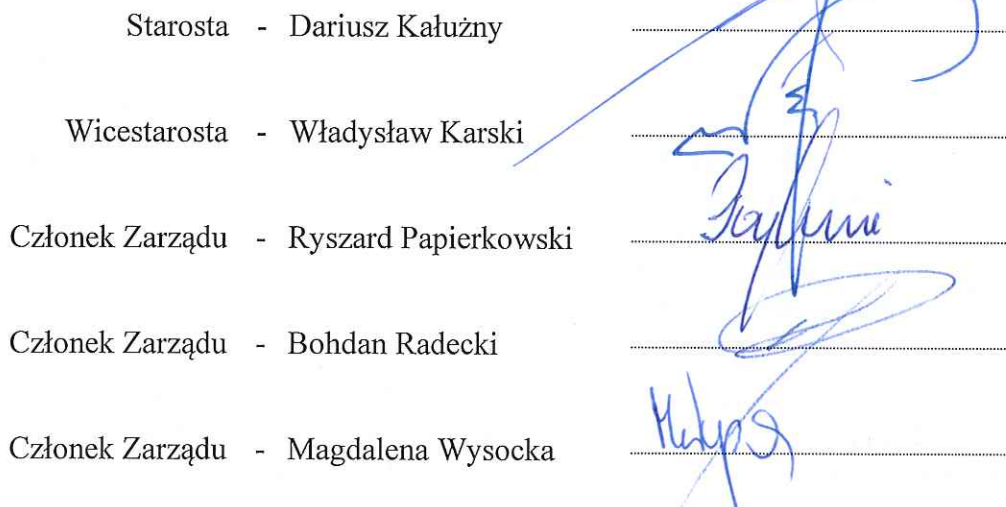 Starosta - Dariusz Kałużny
Wicestarosta - Władysław Karski
Członek Zarządu - Ryszard Papierkowski
Członek Zarządu - Bohdan Radecki
Członek Zarządu - Magdalena Wysocka